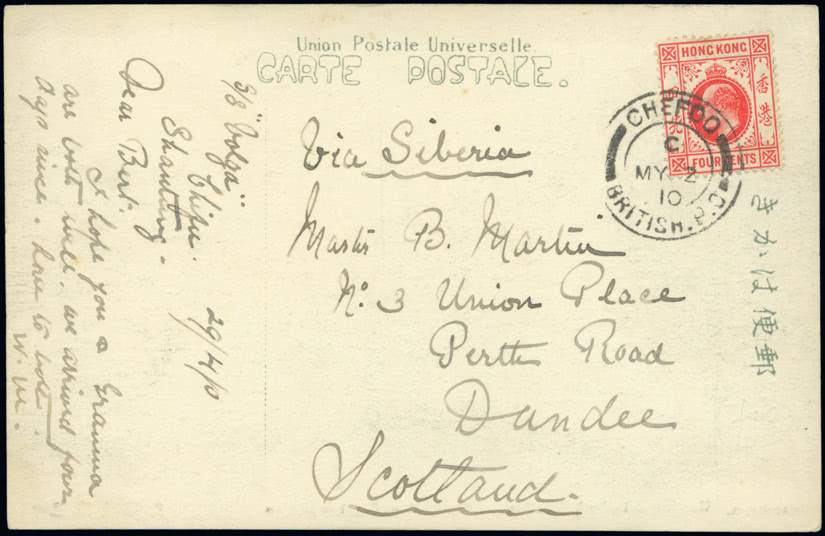 Union Postale Universelle.
CARTE POSTALE.
HONG KONG
香港
FOUR CENTS
CHEFOO
C
MY 2
10
BRITISH.P.O
郵便はかき
Via Siberia
Master B. Martin
No. 3 Union Place
Perth Road
Dundee
Scotland.
S/S "Volga"
Chifu.
Shantung.
29/4/10
Dear Bert.
I hope you & Granma
are both well. we arrived four
days since. Love to both.
W. M.